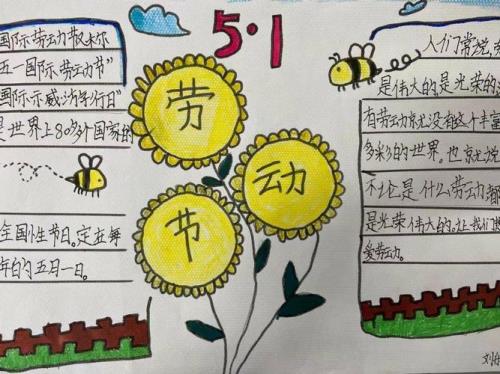 5·1
劳
动
节
国际劳动节又称
五一国际劳动节"
国际示威游行日"
是世界上80多个国家的
全国性节日。定在每
年的五月一日。
人们常说,
是伟大的是光荣的
有劳动就没有这个丰富
多彩的世界。也就是说
不论是什么劳动都
是光荣伟大的,让我们
爱劳动。